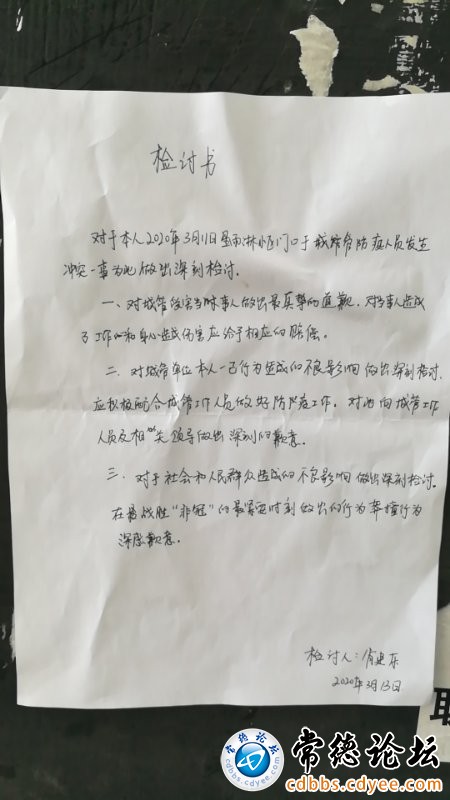 检讨书
对于本人2020年3月11日雨淋小区门口于城管防疫人员发生
冲突一事为此做出深刻检讨.
一、对城管役害当时事人做出最真挚的道歉，对当事人造成
了工作心和身心造成伤害应给予相应的赔偿。
二、对城管单位本人一己行为造成的不良影响做出深刻检讨.
应积极配合城管工作人员做好防疫工作，对此向城管工作
人员及相关领导做出深刻的歉意.
三、对于社会和人民群众造成的不良影响做出深刻检讨.
在战胜"非冠"的最紧要时刻做出的行为莽撞行为
深感歉意.
检讨人：肖建东
2020年3月13日
常德论坛
cdbbs.cdyee.com